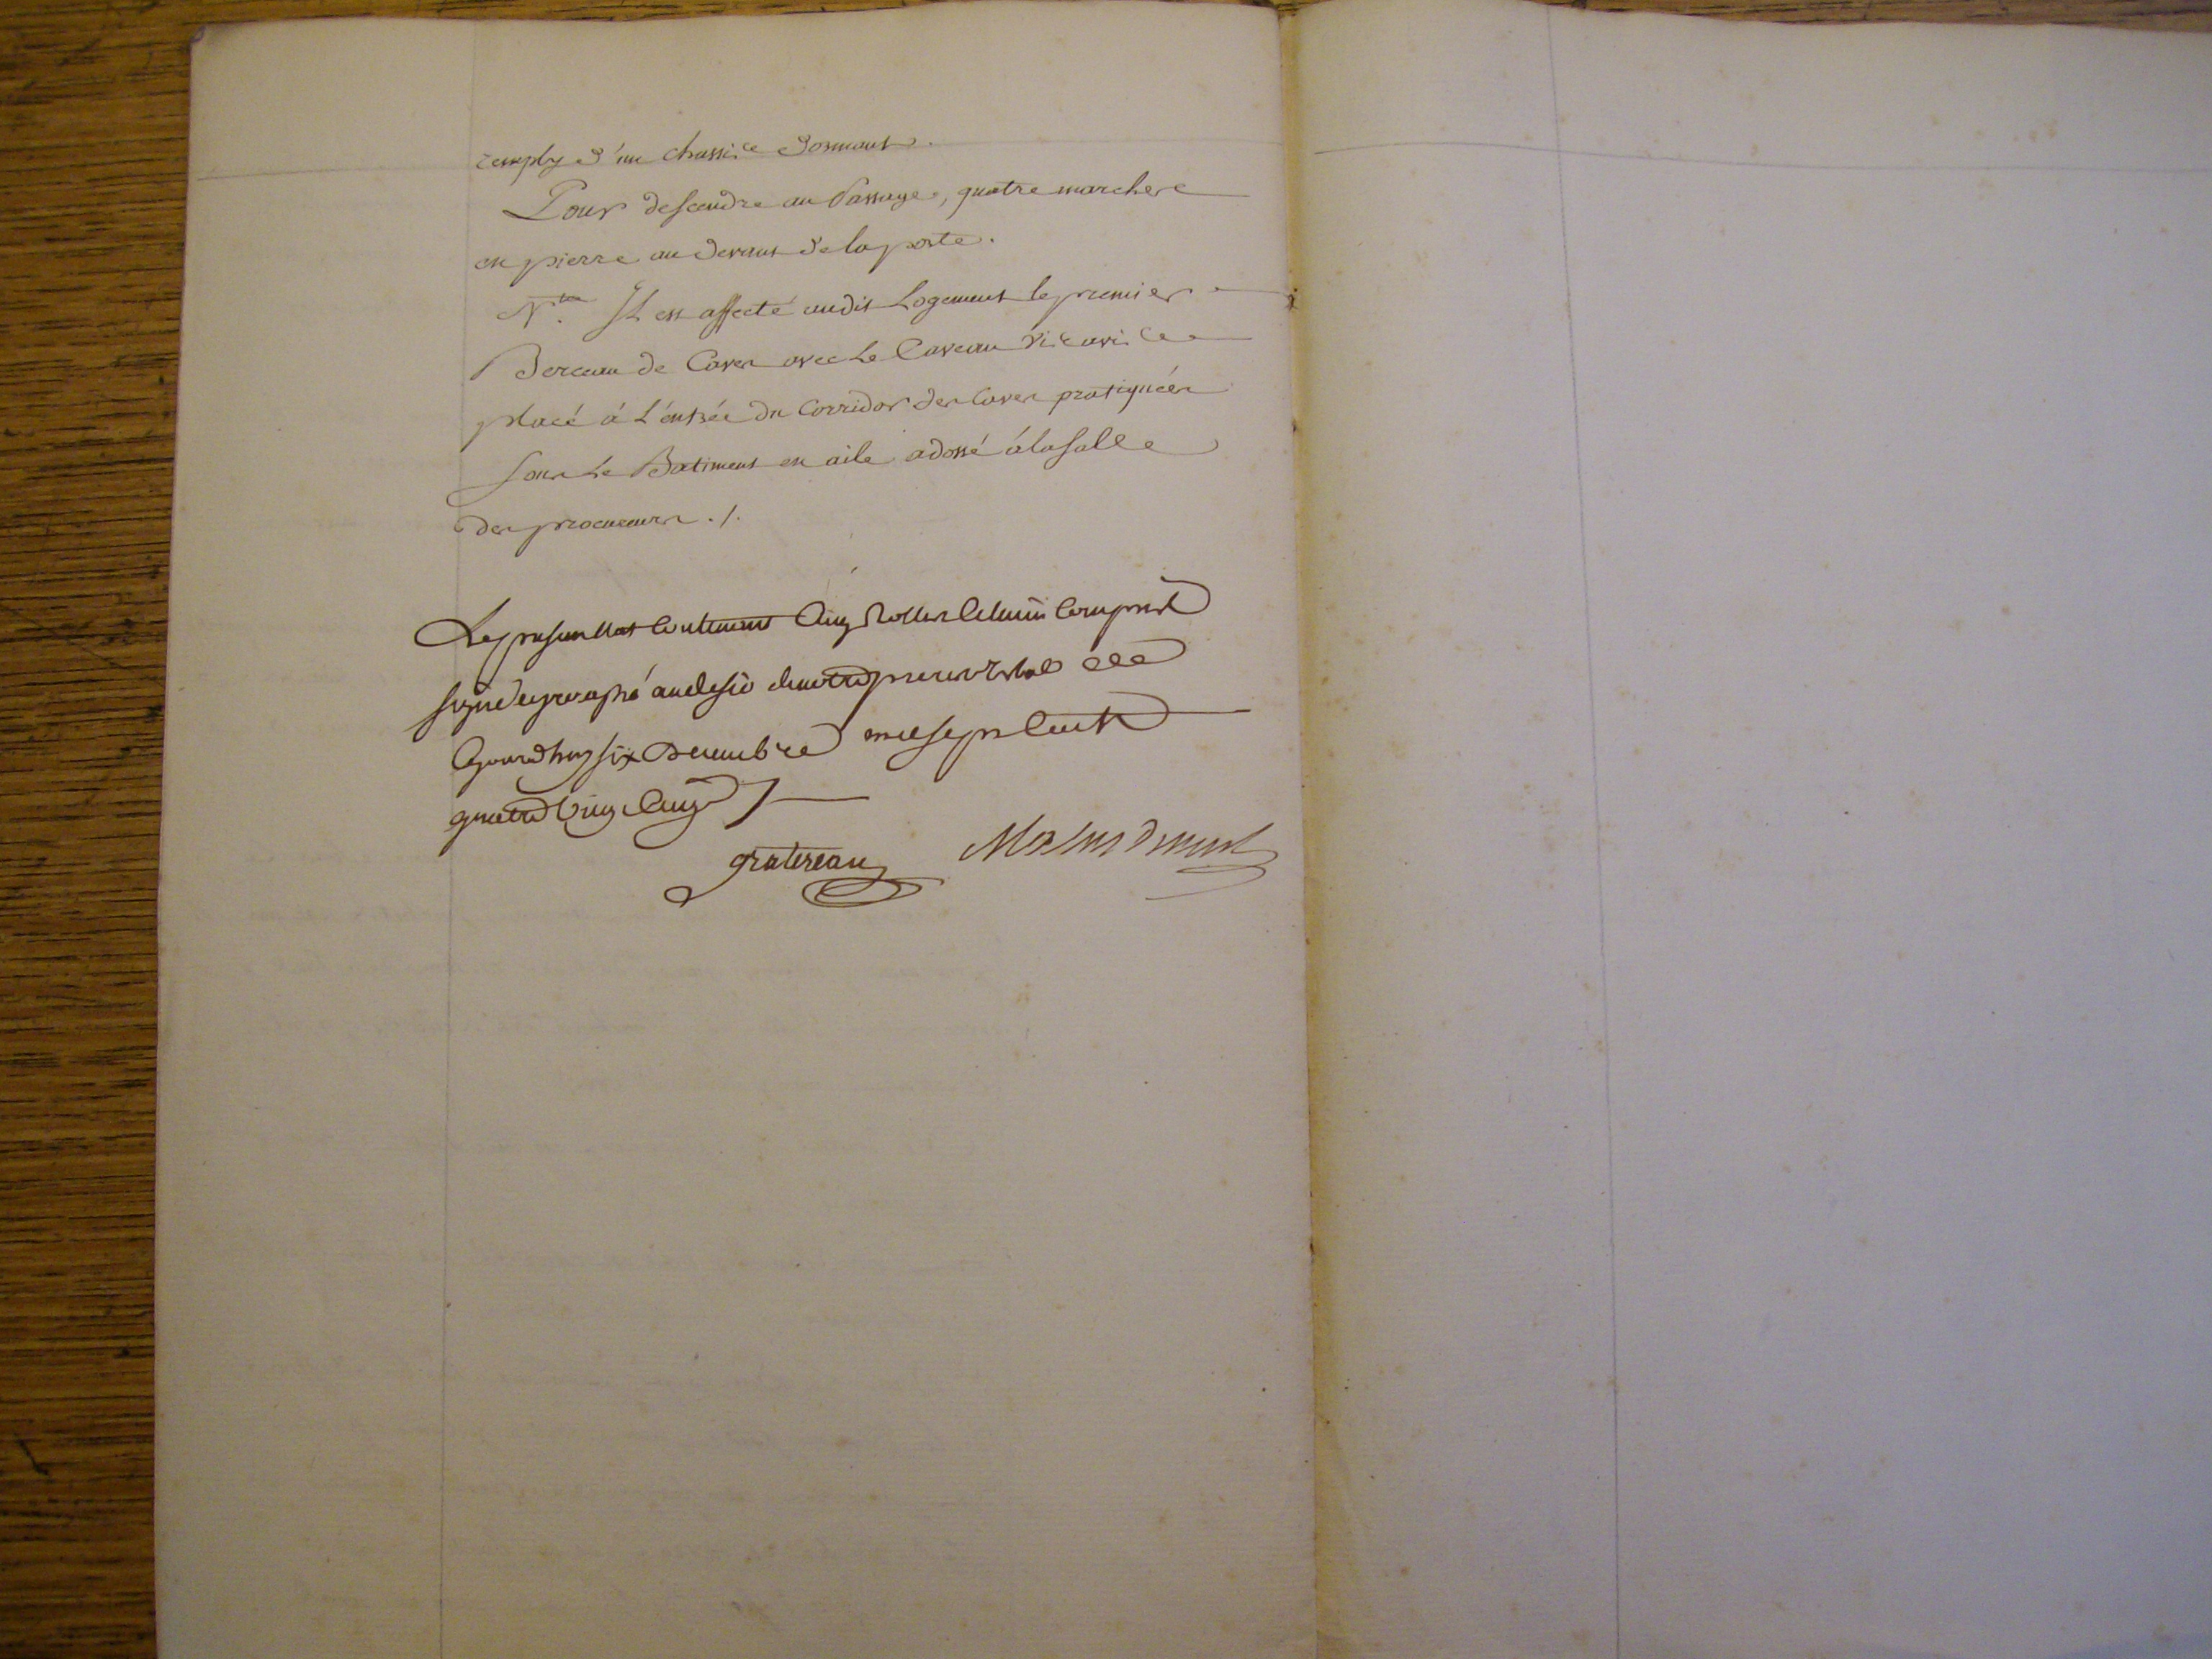 remply d'un chassis dormant.
Pour descendre au Passage, quatre marches
en pierre au devant de la porte.
Nta. Il est affecté audit Logement le premier
Berceau de Caves avec le Caveau vis avis
placé á L'éntrée du Corridor des Caves pratiquées
sous le Batiment en aile adossé á la salle
des procureurs ./.
Le present Etat Contenant Cinq Rolles Celuici Compris
signé et paraphé au desir de notre procès verbal
Cejourdhuy six Decembre mil sept Cent
quatre Vingt Cinq /
gratereau